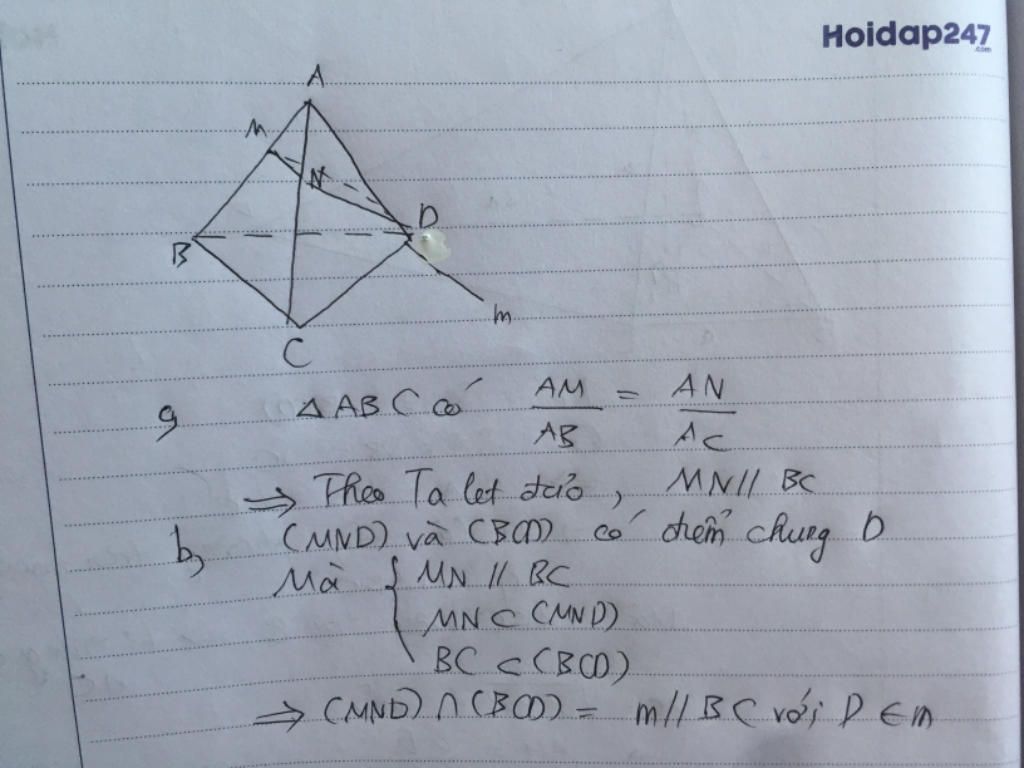 Hoidap247
.com
A
M
N
D
B
m
C
a, Δ ABC có AM/AB = AN/AC
⇒ Theo Ta let đảo, MN // BC
b, (MND) và (BCD) có điểm chung D
Mà { MN // BC
MN ⊂ (MND)
BC ⊂ (BCD)
⇒ (MND) ∩ (BCD) = m // BC với D ∈ m